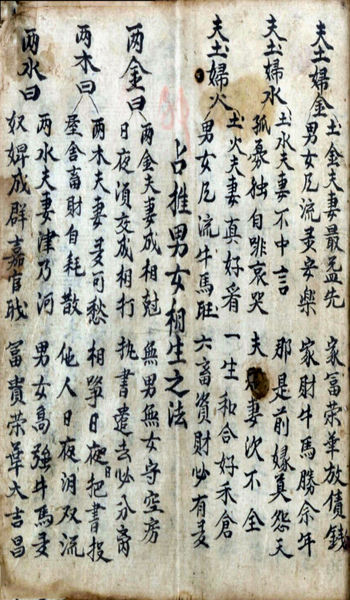 夫土婦金
土金夫妻最益先 家富荣華放債錢
男女凡流多安樂 家財牛馬勝余年
夫土婦水
土水夫妻不中言 那是前緣莫怨天
孤寡独自啼哀哭 夫妻次不全
夫土婦火
土火夫妻真好看 一生和合好禾倉
男女凡流牛馬旺 六畜資財必有多
占推男女相生之法
两金曰
两金夫妻成相尅 無男無女守空房
日夜須交成相打 执書遣去必分离
两木曰
两木夫妻多可愁 相爭日夜把書投
舍畜財自耗散 他人日夜泪双流
两水曰
两水夫妻津乃河 男女高強牛馬多
奴婢成群嘉官职 富貴荣華大吉昌